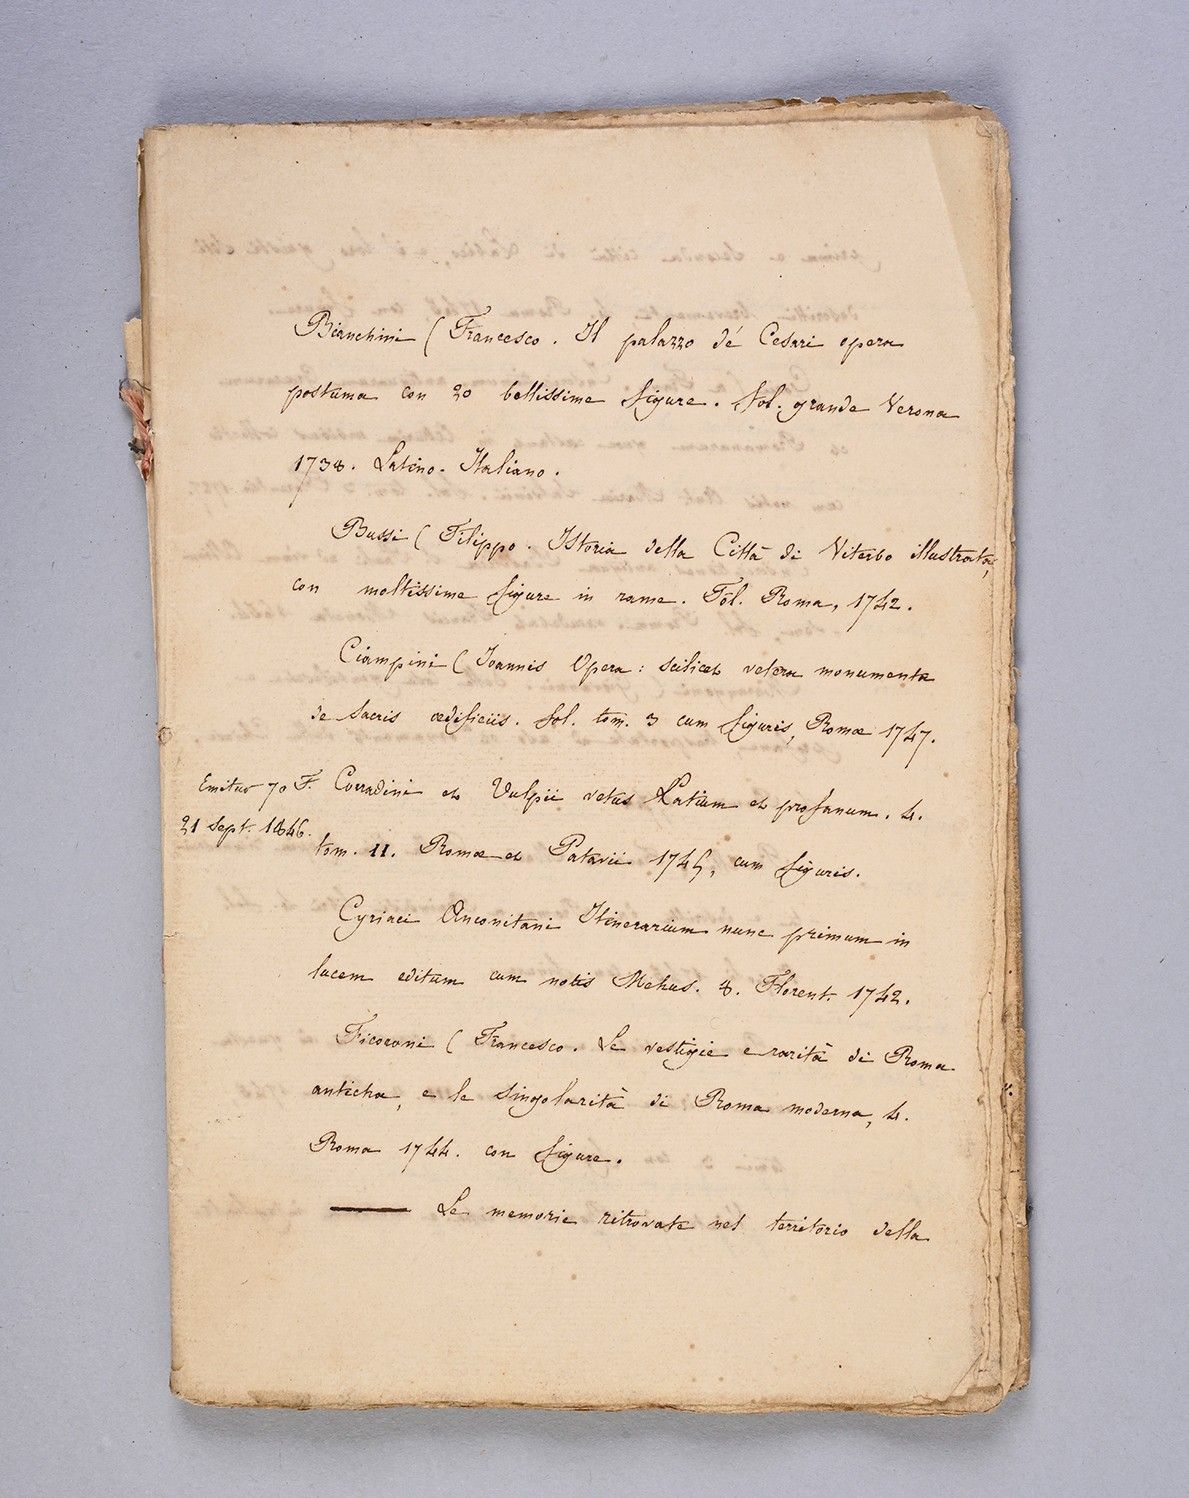 Bianchini (Francesco. Il palazzo de' Cesari opera
postuma con 20 bellissime figure. fol. grande Verona
1738. Latino-Italiano.
Bussi (Filippo. Istoria della Città di Viterbo illustrata,
con moltissime figure in rame. Fol. Roma, 1742.
Ciampini (Joannis Opera: scilicet vetera monumenta
de sacris ædificiis. fol. tom. 3 cum figuris, Romæ 1747.
Emitur 70 F.
21 Sept. 1846.
Corradini et Vulpii vetus Latium et profanum. 4.
tom. 11. Romæ et Patavii 1745, cum figuris.
Cyriaci Anconitani Itinerarium nunc primum in
lucem editum cum notis Mehus. 8. Florent. 1742.
Ficoroni (Francesco. Le vestigie e rarità di Roma
anticha, e le singolarità di Roma moderna, 4.
Roma 1744. con figure.
——— Le memorie ritrovate nel territorio della